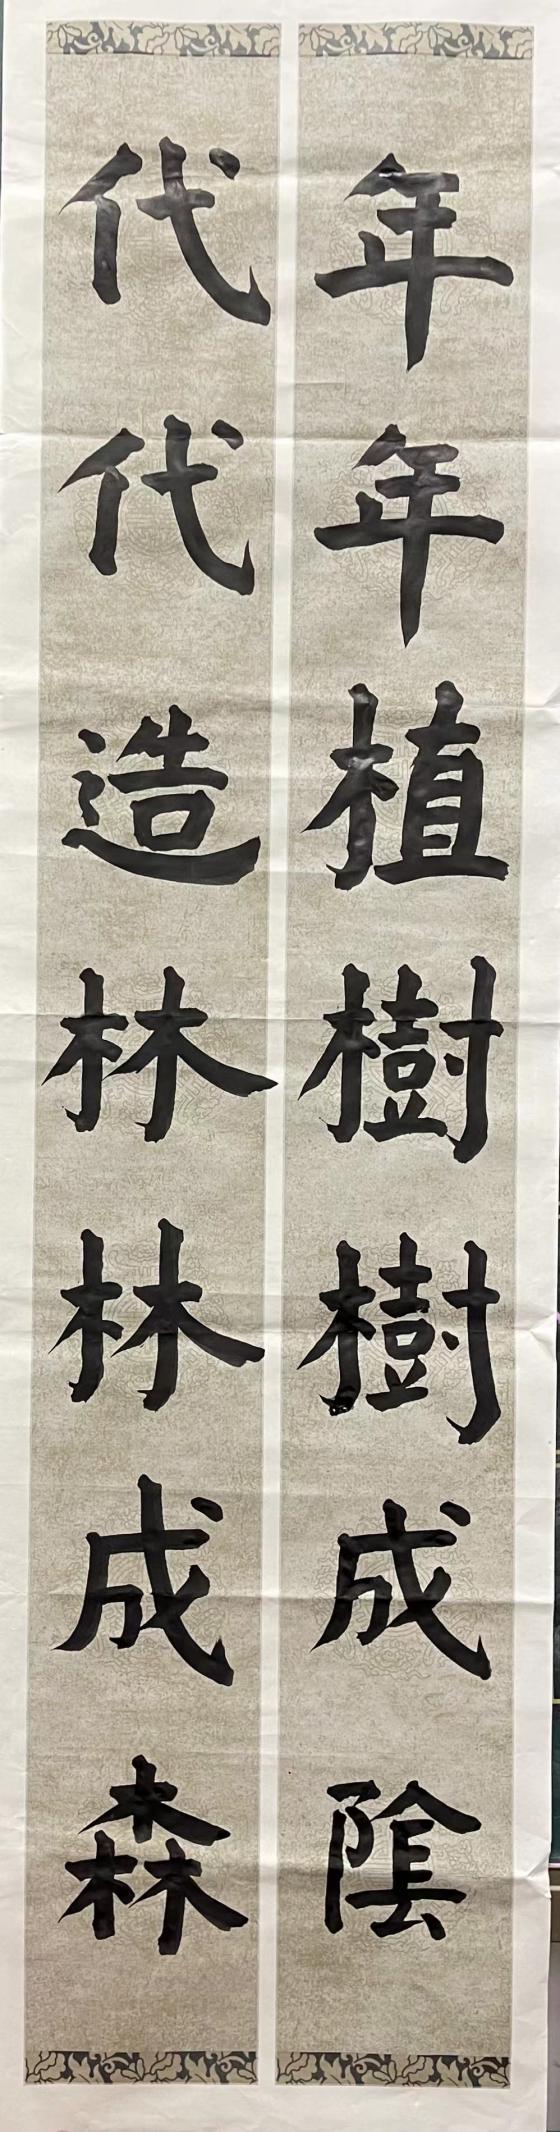 年年植樹樹成陰
代代造林林成森